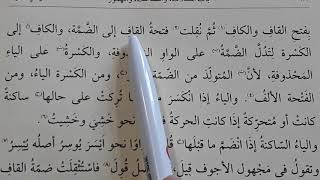 بِفتحِ القافِ والكافِ ثُم نُقِلت فتحةُ القافِ إلى الضَّمَّة، والكافِ إلى
الكَسْرة لِتَدُلَّ الضَّمَّةُ على الواوِ المحذوفةِ، والكَسْرةُ على الياءِ
المَحْذوفةِ، لأنَّ المتولِّدَ من الضَّمَّةِ ومن الكَسْرةِ الياءُ، ومن
الفَتْحة الألفُ. والياءُ إذا انْكسَرَ ما تُرِكتْ على حالِها ساكنةً
كانتْ أو متحرِّكةً إذا كانتِ الحركةُ نحو خَشِيَ وخَشِيتُ
والياءُ السّاكنةُ إذا انْضَمَّ ما قبْلَها واوًا نحو أَيْسَرَ يُوسِرُ أصلُه يُيْسِرُ
وتقولُ في مَجْهولِ الأَجوفِ قِيلَ قُوِلَ فاسْتُثْقِلَتْ ضَمّةُ القافِ